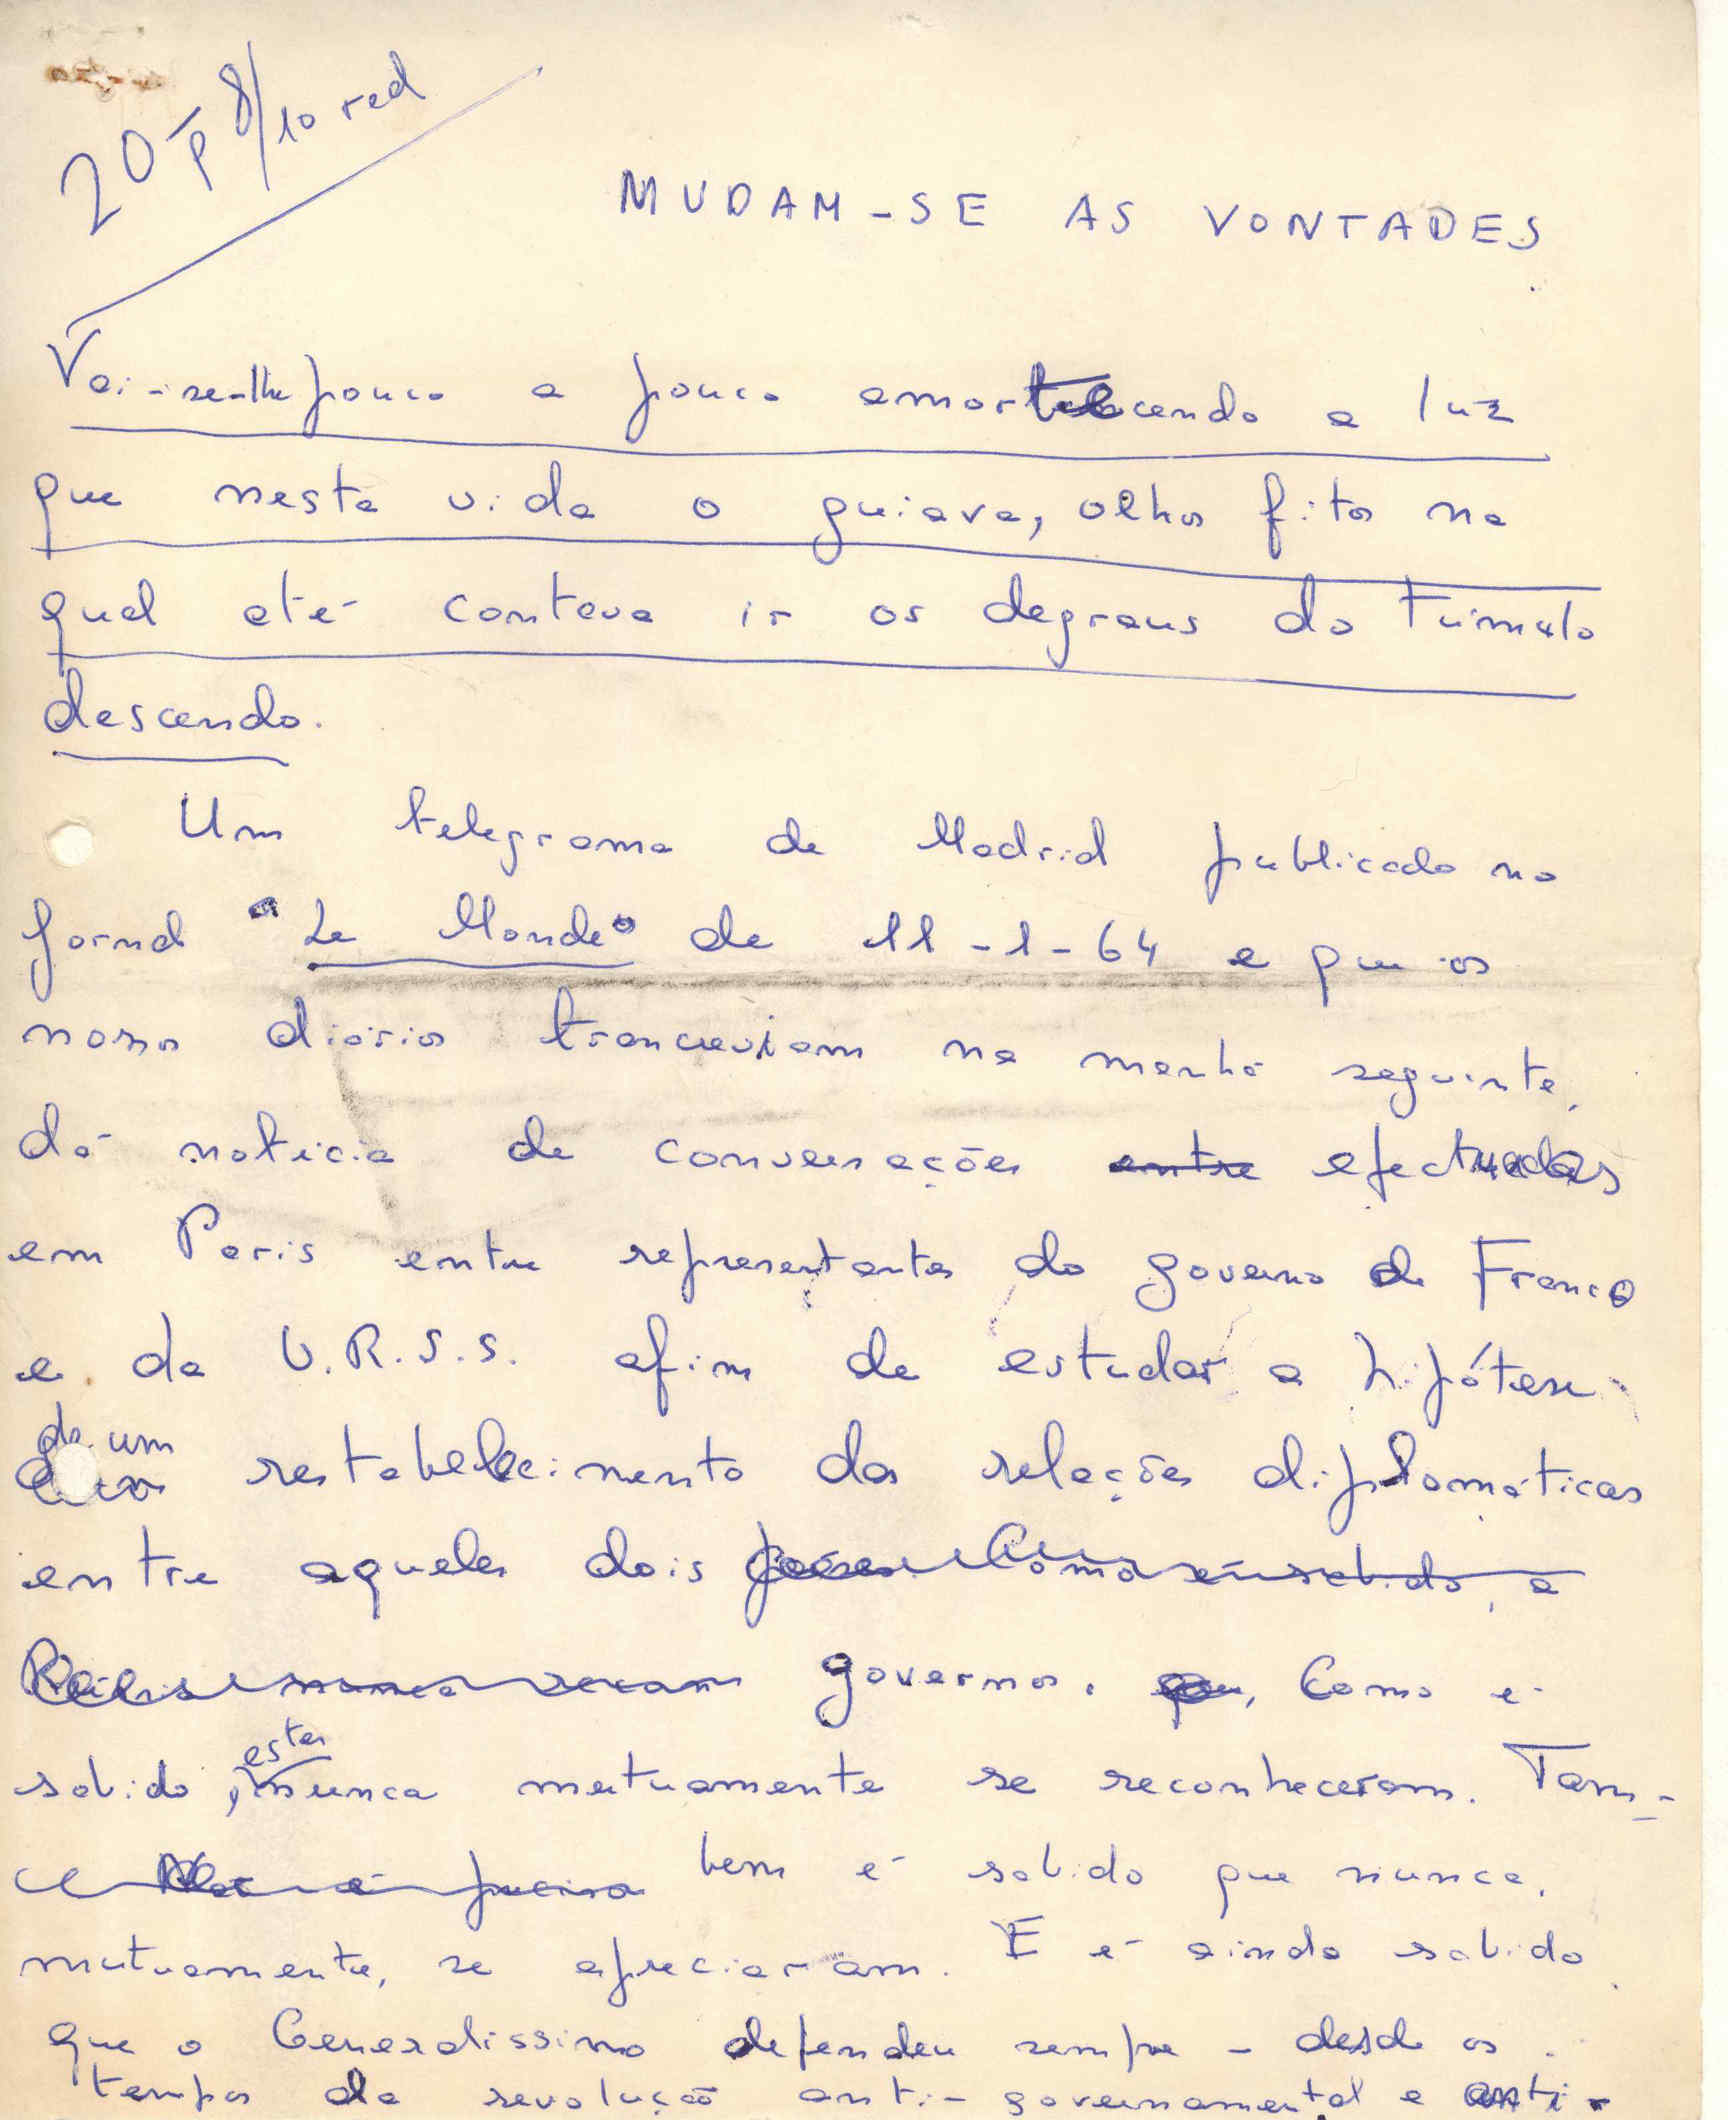 20 p 8/10 red
MUDAM-SE AS VONTADES
Vai-se-lhe pouco a pouco amortecendo a luz
que nesta vida o guiava, olhos fitos na
qual até contava ir os degraus do túmulo
descendo.
Um telegrama de Madrid publicado no
jornal "Le Monde" de 11-1-64 e que os
nossos diários trancreviam na manhã seguinte,
dá noticia de conversações entre efectuadas
em Paris entre representantes do governo de Franco
e da U.R.S.S. afim de estudar a hipótese
de um
restabelecimento das relações diplomáticas
entre aqueles dois Como é sabido, a
nunca governos. Como é
estes
sabido, nunca mutuamente se reconheceram. Tam-
bem é sabido que nunca,
mutuamente, se apreciaram. E é ainda sabido
que o Generalissimo defendeu sempre - desde os
tempos da revolução anti-governamental e anti-